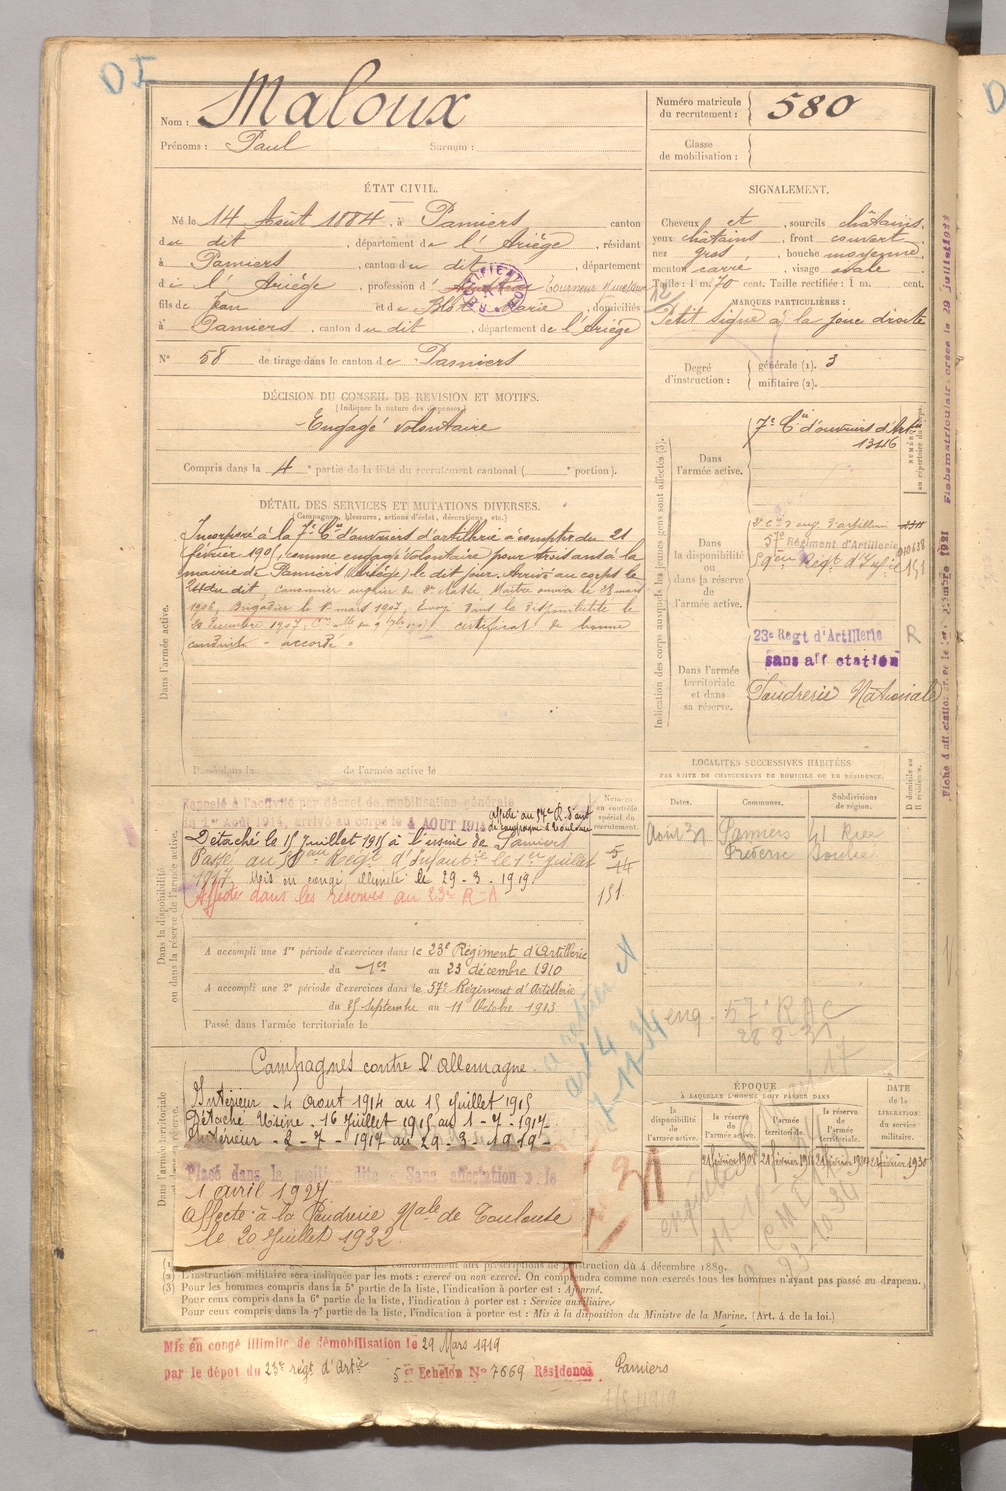 D I
Nom : Maloux
Prénoms : Paul Surnom :
Numéro matricule du recrutement : 580
Classe de mobilisation :
ÉTAT CIVIL.
Né le 14 Août 1884, à Pamiers canton
du dit, département de l'Ariège, résidant
à Pamiers, canton du dit, département
de l'Ariège, profession d' Tourneur
fils de Jean et de Marie, domiciliés
à Pamiers, canton du dit, département de l'Ariège
RECTIFICATION
N° 58 de tirage dans le canton de Pamiers
SIGNALEMENT.
Cheveux et, sourcils châtains,
yeux châtains, front couvert,
nez gros, bouche moyenne,
menton carré, visage ovale
Taille : 1 m. 70 cent. Taille rectifiée : 1 m. cent.
MARQUES PARTICULIÈRES :
Petit signe à la joue droite
Degré d'instruction : générale (1). 3
militaire (2).
DÉCISION DU CONSEIL DE REVISION ET MOTIFS.
(Indiquer la nature des dispenses.)
Engagé volontaire
Compris dans la 4e partie de la liste du recrutement cantonal ( e portion).
DÉTAIL DES SERVICES ET MUTATIONS DIVERSES.
(Campagnes, blessures, actions d'éclat, décorations, etc.)
Dans l'armée active.
Incorporé à la 7e Cie d'ouvriers d'artillerie à compter du 21
février 1905, comme engagé volontaire pour trois ans à la
mairie de Pamiers (Ariège) le dit jour. Arrivé au corps le
dit, canonnier Maître ouvrier le mars
1906, Brigadier le 8 mars 1907, Envoyé dans la disponibilité le
Décembre 1907, certificat de bonne
conduite "accordé"
Passé dans la de l'armée active le
Indication des corps auxquels les jeunes gens sont affectés (3).
Dans l'armée active.
7e Cie d'ouvriers d'Artie
1346
Dans la disponibilité ou dans la réserve de l'armée active.
57e Régiment d'Artillerie
59eme Régt d'Infie 151
Dans l'armée territoriale et dans sa réserve.
23e Régt d'Artillerie R
sans affectation
Poudrerie Nationale
Fiche matriculaire créée le 29 juillet 1933
LOCALITÉS SUCCESSIVES HABITÉES
PAR SUITE DE CHANGEMENTS DE DOMICILE OU DE RÉSIDENCE.
Dates. Communes. Subdivisions de région. D domicile ou R résidence.
Août 31 Pamiers 41 Rue
Frédéric Soulié
eng. 57e RAC
28 8 31
Dans la disponibilité ou dans la réserve de l'armée active.
Numéro au contrôle spécial du recrutement.
Rappelé à l'activité par décret de mobilisation générale
du 1er Août 1914, arrivé au corps le 4 AOUT 1914
Détaché le 15 juillet 1915 à l'usine de Pamiers
Passé au 59eme Régt d'Infantie le 1er juillet
1917. Mis en congé illimité le 29-3-1919.
Affecté dans les réserves au 23e R-A
151
A accompli une 1re période d'exercices dans le 23e Régiment d'Artillerie
du 1er au 23 décembre 1910
A accompli une 2e période d'exercices dans le 57e Régiment d'Artillerie
du 25 Septembre au 11 Octobre 1913
Passé dans l'armée territoriale le
Dans l'armée territoriale
Campagnes contre l'Allemagne
Intérieur - 4 Août 1914 au 15 Juillet 1915
Détaché Usine - 16 Juillet 1915 au 1-7-1917.
Intérieur - 2-7-1917 au 29-3-1919-
Placé dans la position dite « Sans affectation » le
1 avril 1927
Affecté à la Poudrerie Nale de Toulouse
le 20 Juillet 1932.
ÉPOQUE
À LAQUELLE L'HOMME DOIT PASSER DANS
la disponibilité de l'armée active. la réserve de l'armée active. l'armée territoriale. la réserve de l'armée territoriale.
DATE DE LA LIBÉRATION du service militaire.
21 février 1908
conformément aux prescriptions de l'instruction du 4 décembre 1889.
(2) L'instruction militaire sera indiquée par les mots : exercé ou non exercé. On comprendra comme non exercés tous les hommes n'ayant pas passé au drapeau.
(3) Pour les hommes compris dans la 5e partie de la liste, l'indication à porter est : Ajourné.
Pour ceux compris dans la 6e partie de la liste, l'indication à porter est : Service auxiliaire.
Pour ceux compris dans la 7e partie de la liste, l'indication à porter est : Mis à la disposition du Ministre de la Marine. (Art. 4 de la loi.)
Mis en congé illimité de démobilisation le 29 Mars 1919
par le dépôt du 23e régt d'Artie 5e Echelon N° 7669 Résidence Pamiers